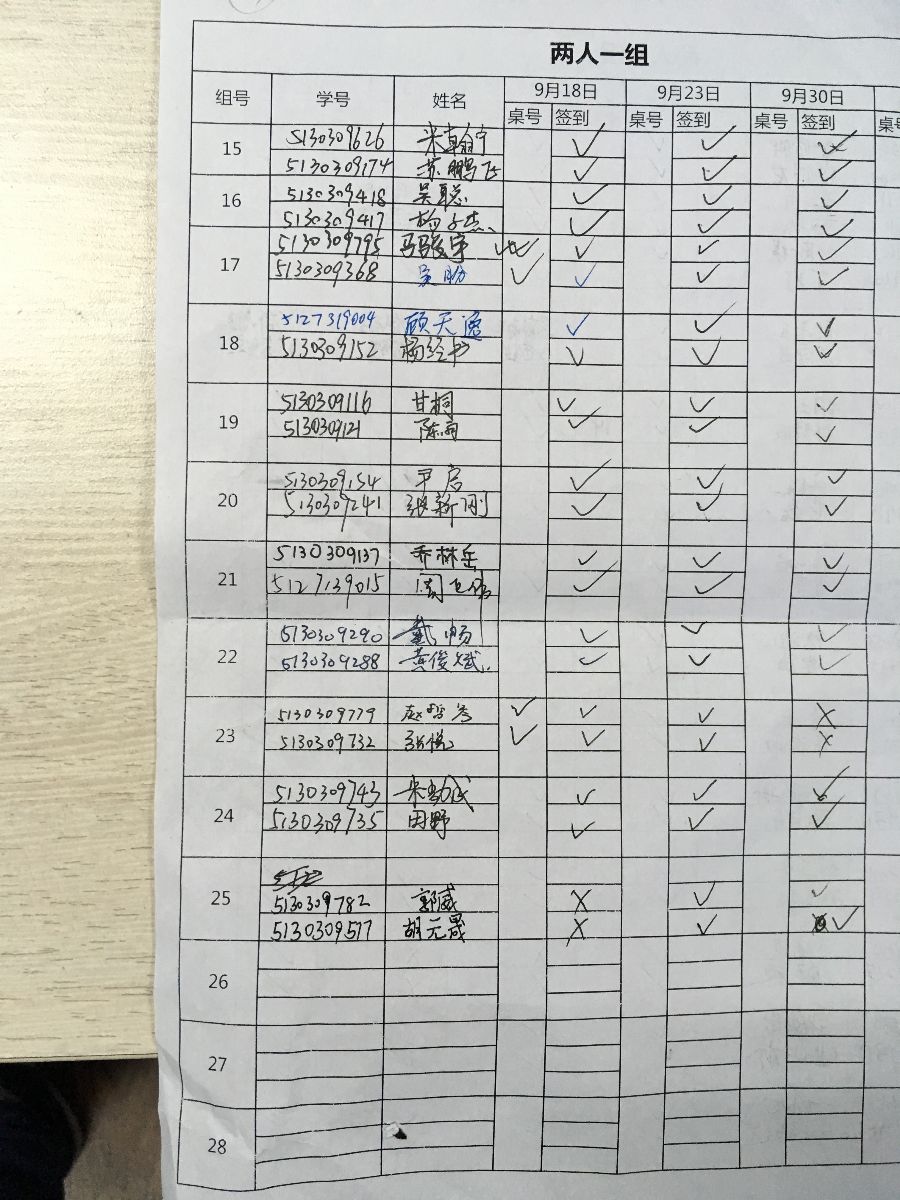 两人一组
组号 学号 姓名 9月18日 9月23日 9月30日
桌号 签到 桌号 签到 桌号 签到 桌号
15 5130309626 ✓ ✓ ✓
5130309174 苏鹏飞 ✓ ✓ ✓
16 5130309418 吴聪 ✓ ✓ ✓
5130309417 杨子杰 ✓ ✓ ✓
17 5130309795 马骏宇 ✓ ✓ ✓ ✓
5130309368 ✓ ✓ ✓ ✓
18 5127319004 顾天逸 ✓ ✓ ✓
5130309152 杨经书 ✓ ✓ ✓
19 5130309116 甘桐 ✓ ✓ ✓
5130309121 陈雨 ✓ ✓ ✓
20 5130309154 尹启 ✓ ✓ ✓
5130309241 张新刚 ✓ ✓ ✓
21 5130309137 乔林岳 ✓ ✓ ✓
5127139015 ✓ ✓ ✓
22 5130309290 戴畅 ✓ ✓ ✓
5130309288 黄俊斌 ✓ ✓ ✓
23 5130309779 ✓ ✓ ✓ ✗
5130309732 张悦 ✓ ✓ ✓ ✗
24 5130309743 ✓ ✓ ✓
5130309735 田野 ✓ ✓ ✓
25 5130309782 郭威 ✗ ✓ ✓
5130309517 胡元晟 ✗ ✓ ✓
26
27
28